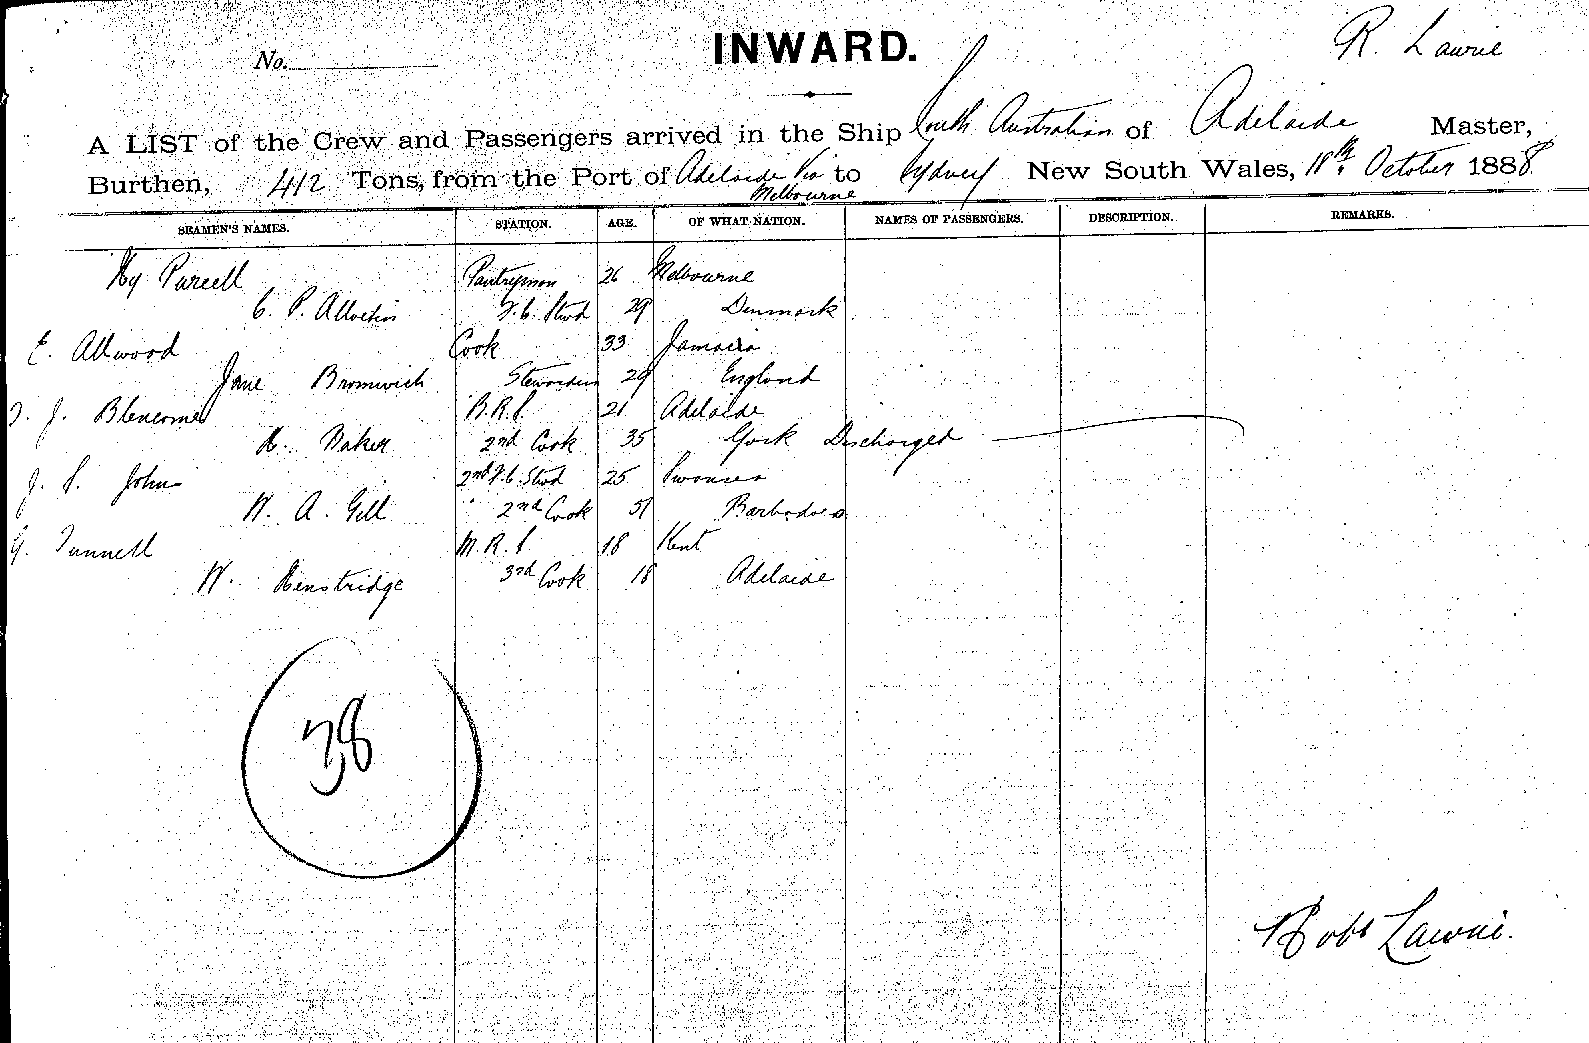 No.
INWARD.
R. Lawrie
A LIST of the Crew and Passengers arrived in the Ship South Australian of Adelaide Master,
Burthen, 412 Tons, from the Port of Adelaide Via Melbourne to Sydney New South Wales, 18th October 1888
SEAMEN'S NAMES. STATION. AGE. OF WHAT NATION. NAMES OF PASSENGERS. DESCRIPTION. REMARKS.
Hy Purcell Pantryman 26 Melbourne
C. P. 29 Denmark
E. Allwood Cook 33 Jamaica
Jane Bromwich Stewardess 29 England
J. B.R.S 21 Adelaide
H. Baker 2nd Cook 35 York Discharged
J. S. John 2nd F.C. Stwd 25 Swansea
W. A. Gill 2nd Cook 51 Barbadoes
G. Tunnell M.R.S 18 Kent
W. Henstridge 3rd Cook 18 Adelaide
38
Robt Lawrie.